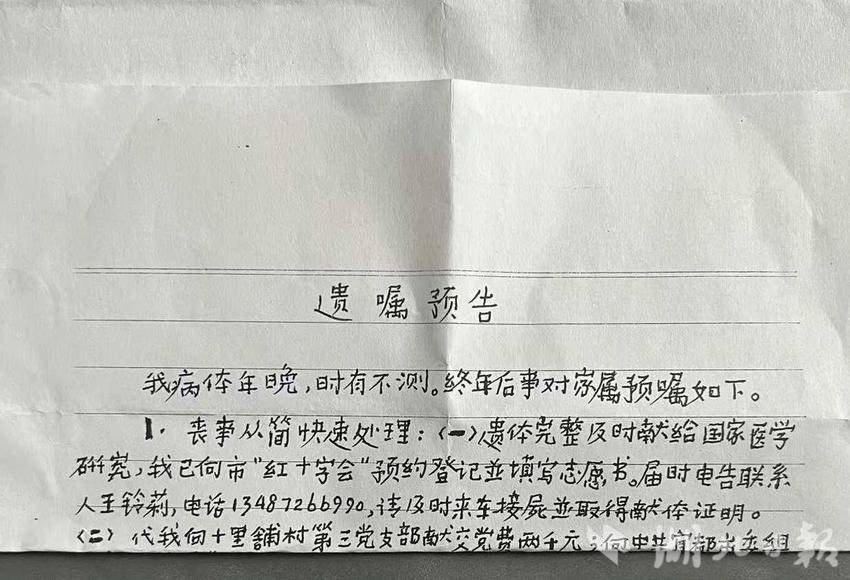 遗嘱预告
我病体年晚,时有不测。终年后事对家属预嘱如下。
1. 丧事从简快速处理:(一)遗体完整及时献给国家医学
研究,我已向市"红十字会"预约登记並填写志愿书。届时电告联系
人王铃莉,电话13487266990,请及时来车接屍並取得献体证明。
(二)代我向十里舖村第三党支部献交党费两千元,向中共宜都市委组
湖北日报